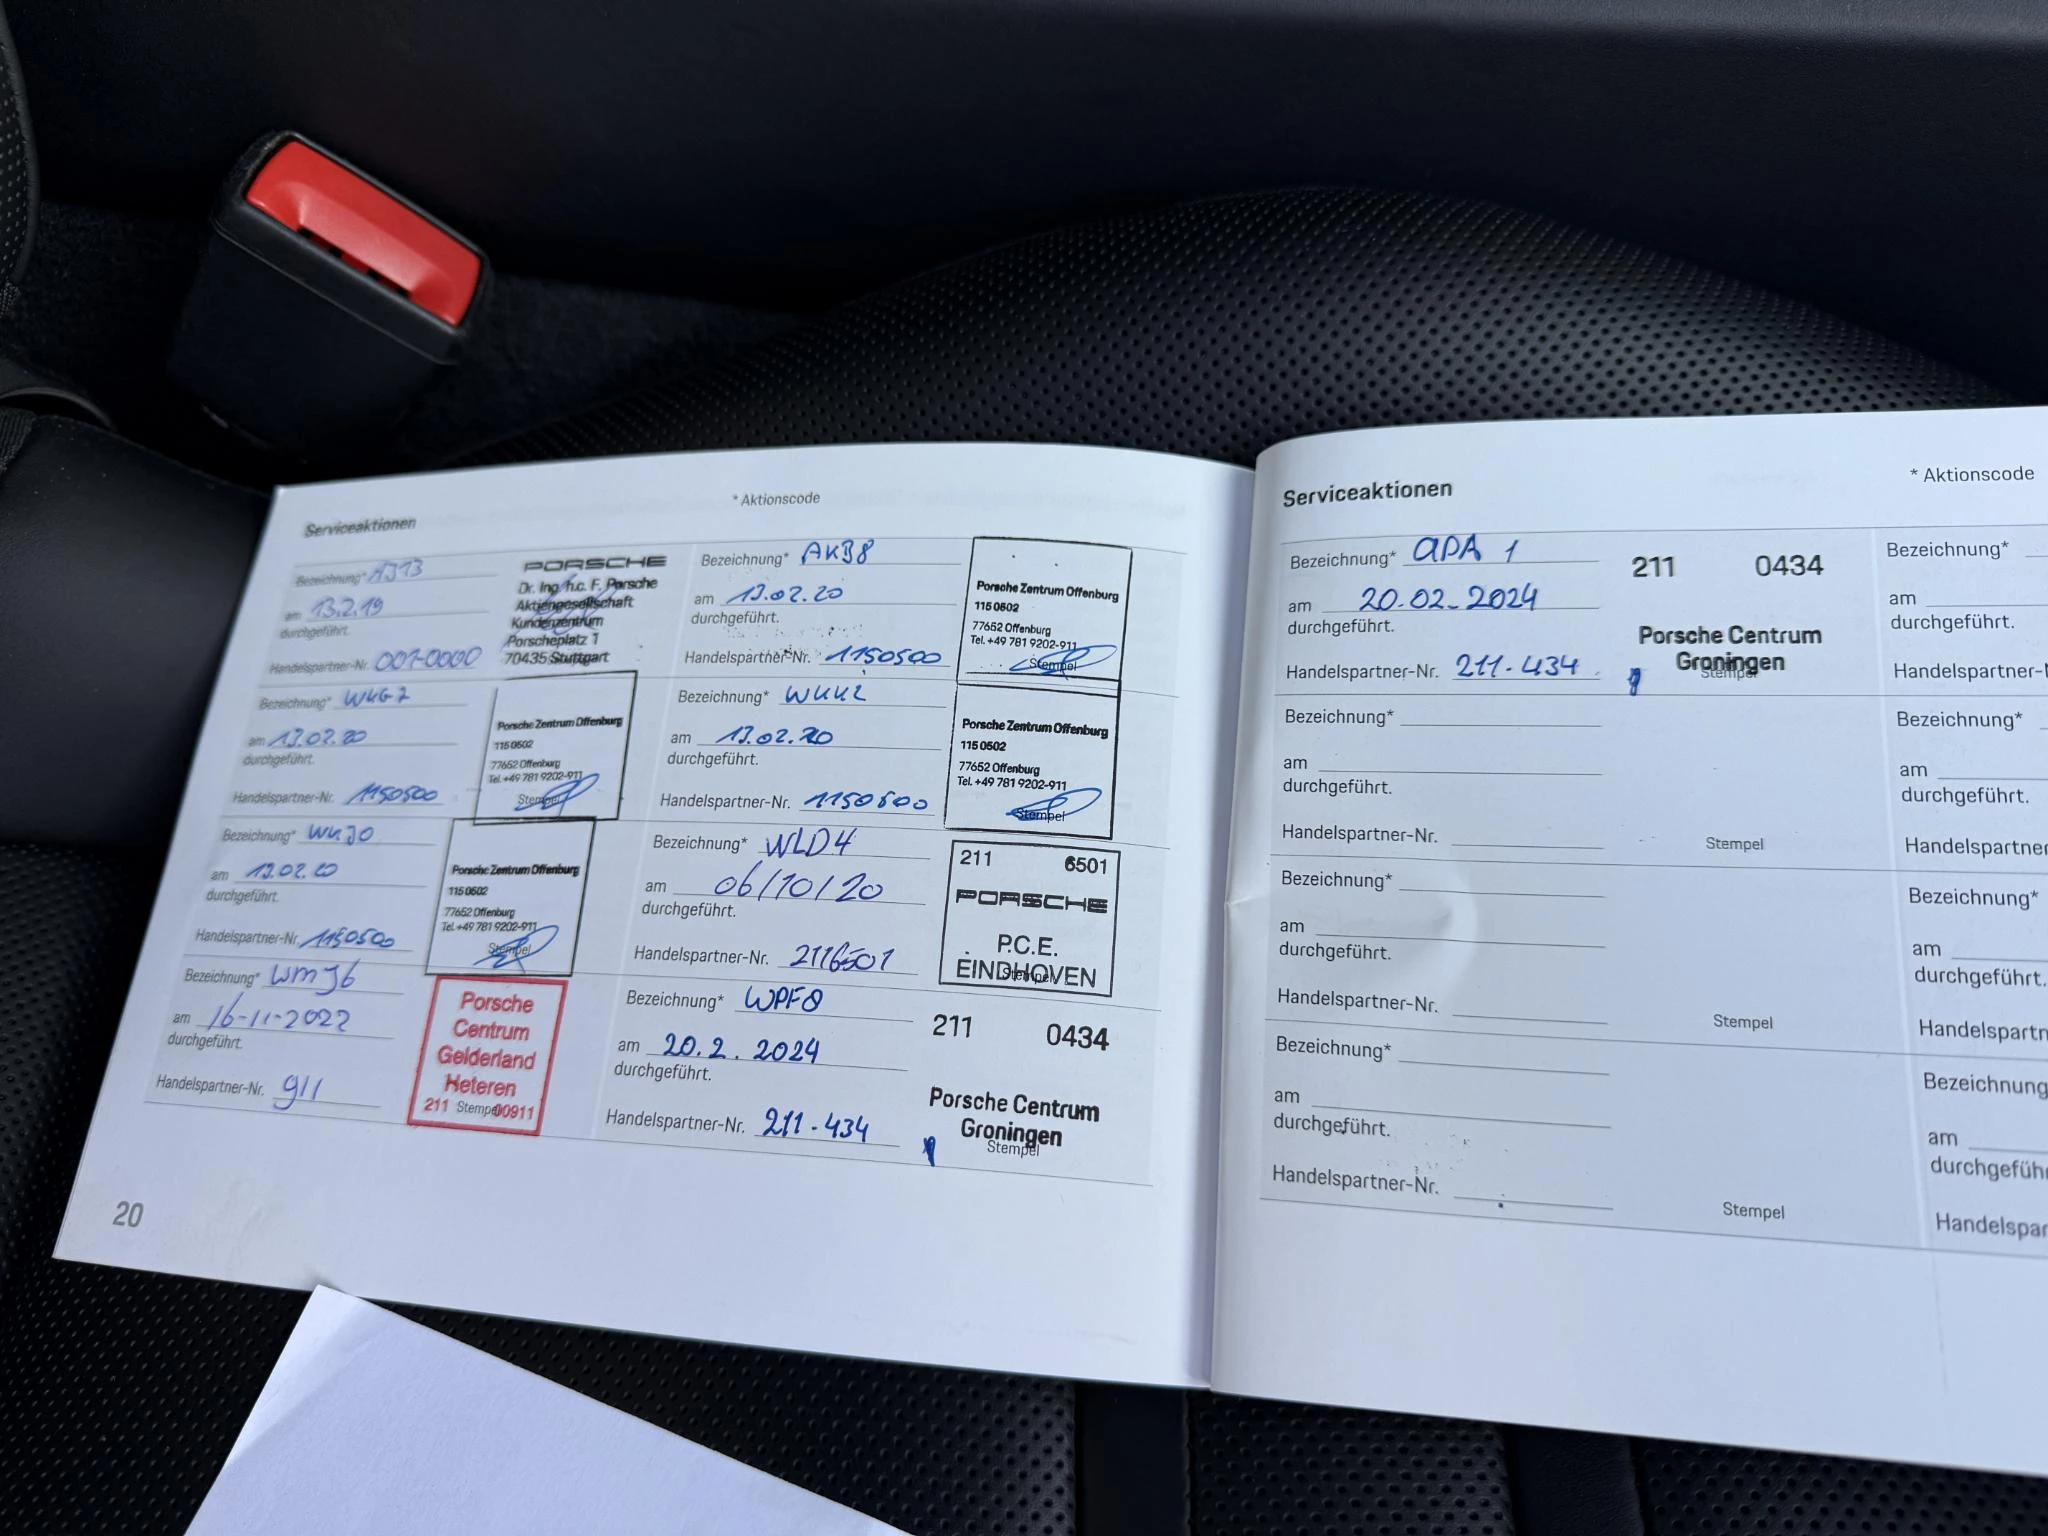 * Aktionscode
Serviceaktionen
Bezeichnung* AJ13
am 13.2.19
durchgeführt.
Handelspartner-Nr. 001-0000
PORSCHE
Dr. Ing. h.c. F. Porsche
Aktiengesellschaft
Kundenzentrum
Porscheplatz 1
70435 Stuttgart
Bezeichnung* AKB8
am 13.02.20
durchgeführt.
Handelspartner-Nr. 1150500
Porsche Zentrum Offenburg
115 0502
77652 Offenburg
Tel. +49 781 9202-911
Stempel
Bezeichnung* WKG7
am 13.02.20
durchgeführt.
Handelspartner-Nr. 1150500
Porsche Zentrum Offenburg
115 0502
77652 Offenburg
Tel. +49 781 9202-911
Stempel
Bezeichnung*
am 13.02.20
durchgeführt.
Handelspartner-Nr. 1150500
Porsche Zentrum Offenburg
115 0502
77652 Offenburg
Tel. +49 781 9202-911
Stempel
Bezeichnung* WKJ0
am 13.02.20
durchgeführt.
Handelspartner-Nr. 1150500
Porsche Zentrum Offenburg
115 0502
77652 Offenburg
Tel. +49 781 9202-911
Stempel
Bezeichnung* WLD4
am 06/10/20
durchgeführt.
Handelspartner-Nr. 2116501
211 6501
PORSCHE
P.C.E.
EINDHOVEN
Stempel
Bezeichnung* WMJ6
am 16-11-2022
durchgeführt.
Handelspartner-Nr. 911
Porsche
Centrum
Gelderland
Heteren
211 Stempel 00911
Bezeichnung* WPF8
am 20.2.2024
durchgeführt.
Handelspartner-Nr. 211-434
211 0434
Porsche Centrum
Groningen
Stempel
20
* Aktionscode
Serviceaktionen
Bezeichnung* APA 1
am 20.02.2024
durchgeführt.
Handelspartner-Nr. 211-434
211 0434
Porsche Centrum
Groningen
Stempel
Bezeichnung*
am
durchgeführt.
Handelspartner-N
Bezeichnung*
am
durchgeführt.
Handelspartner-Nr.
Stempel
Bezeichnung*
am
durchgeführt.
Handelspartner
Bezeichnung*
am
durchgeführt.
Handelspartner-Nr.
Stempel
Bezeichnung*
am
durchgeführt.
Handelspartn
Bezeichnung*
am
durchgeführt.
Handelspartner-Nr.
Stempel
Bezeichnung
am
durchgefüh
Handelspar